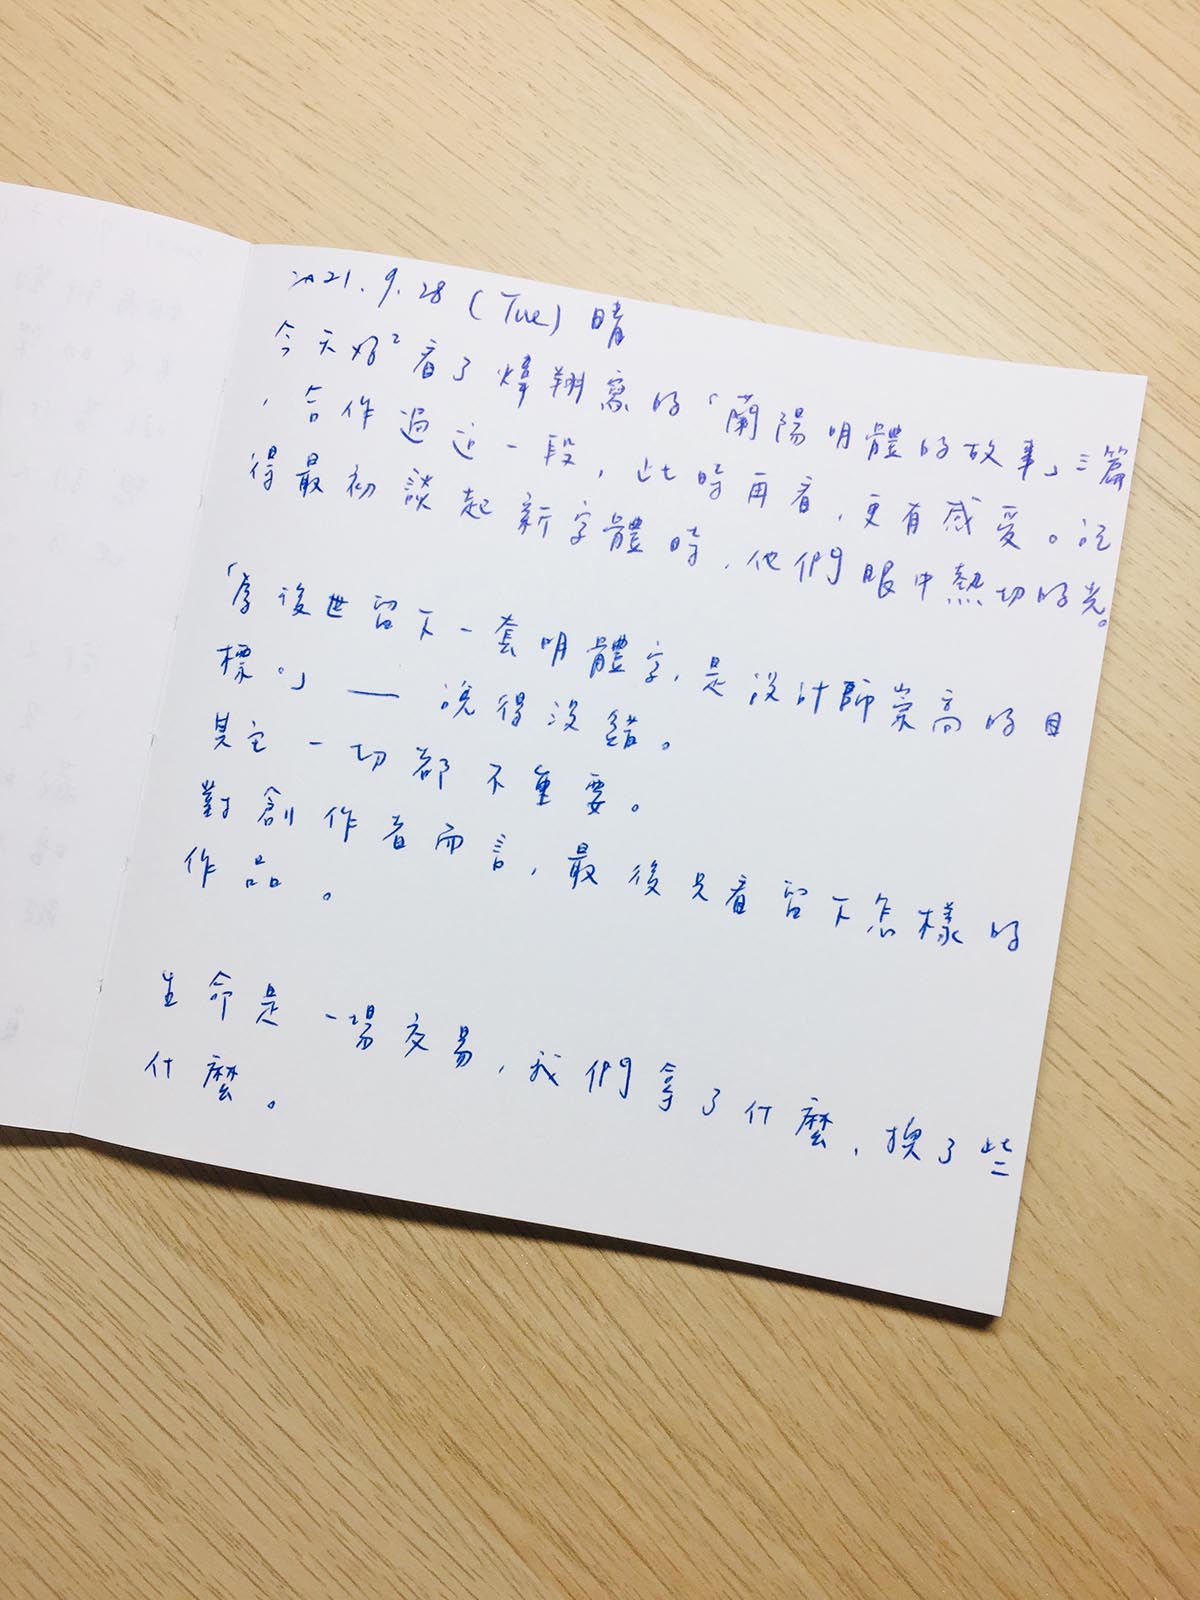 2021.9.28 (Tue) 晴
今天好2看了煒翔寫的「蘭陽明體的故事」三篇
，合作過這一段，此時再看，更有感受。記
得最初談起新字體時，他們眼中熱切的光。
「為後世留下一套明體字，是設計師崇高的目
標。」——說得沒錯。
其它一切都不重要。
對創作者而言，最後只看留下怎樣的
作品。
生命是一場交易，我們拿了什麼，換了些
什麼。